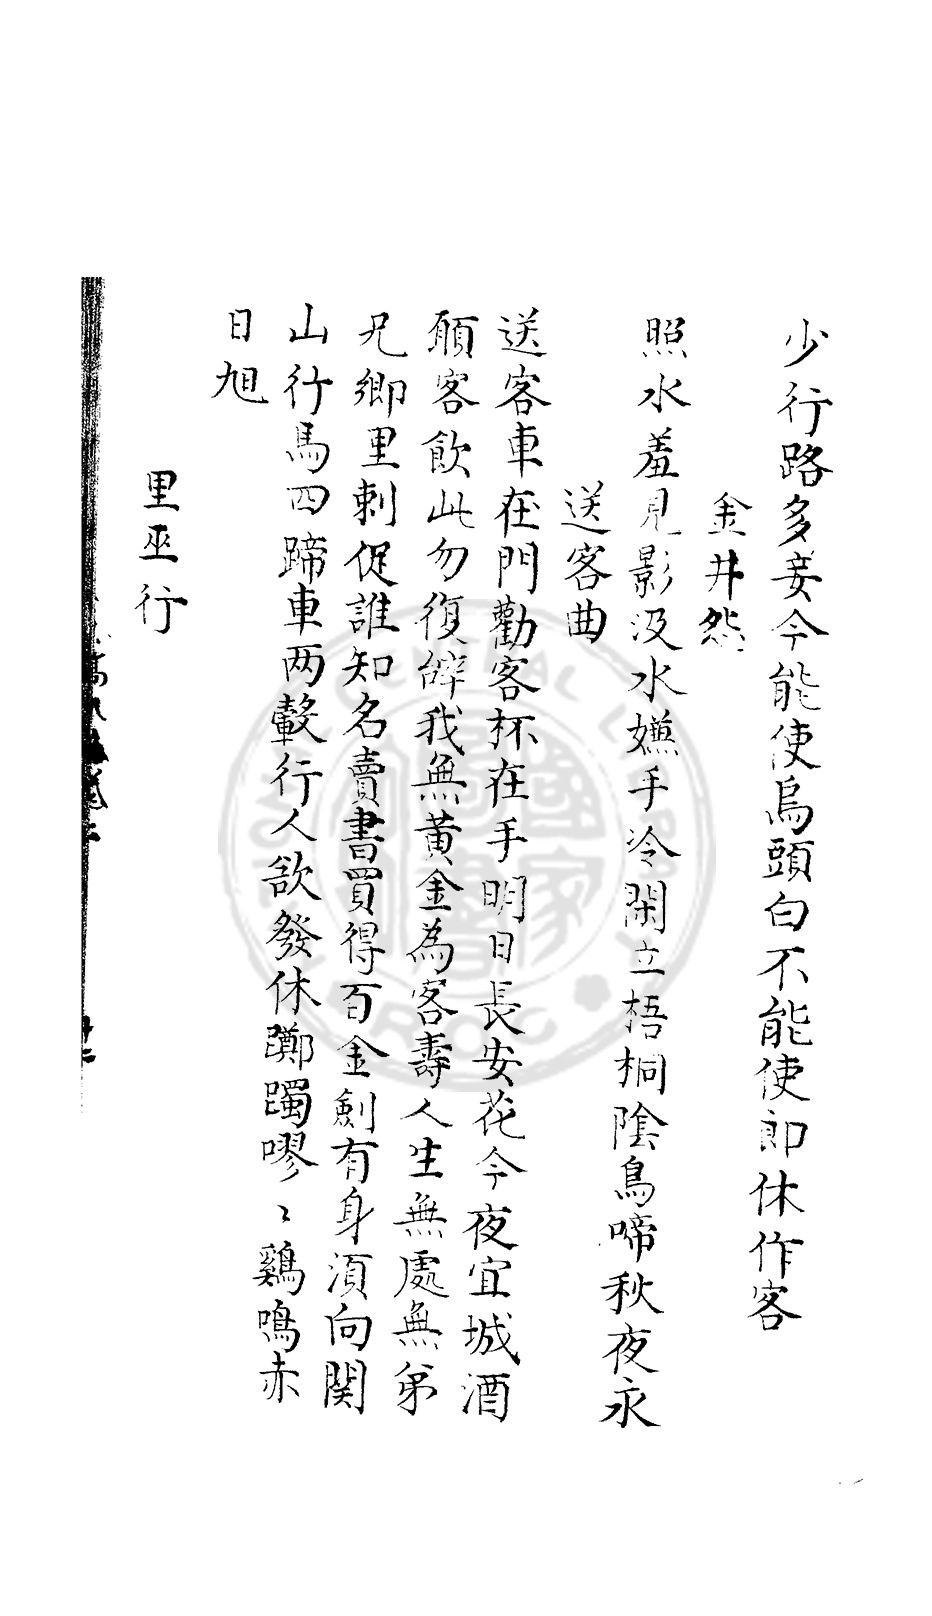 少行路多妾今能使烏頭白不能使郎休作客
金井怨
照水羞見影汲水嫌手冷閑立梧桐陰烏啼秋夜永
送客曲
送客車在門勸客杯在手明日長安花今夜宜城酒
願客飲此勿復辭我無黄金為客壽人生無處無弟
兄鄉里刺促誰知名賣書買得百金劍有身須向関
山行馬四蹄車两轂行人欲發休躑躅嘐〻鷄鳴赤
日旭
里巫行